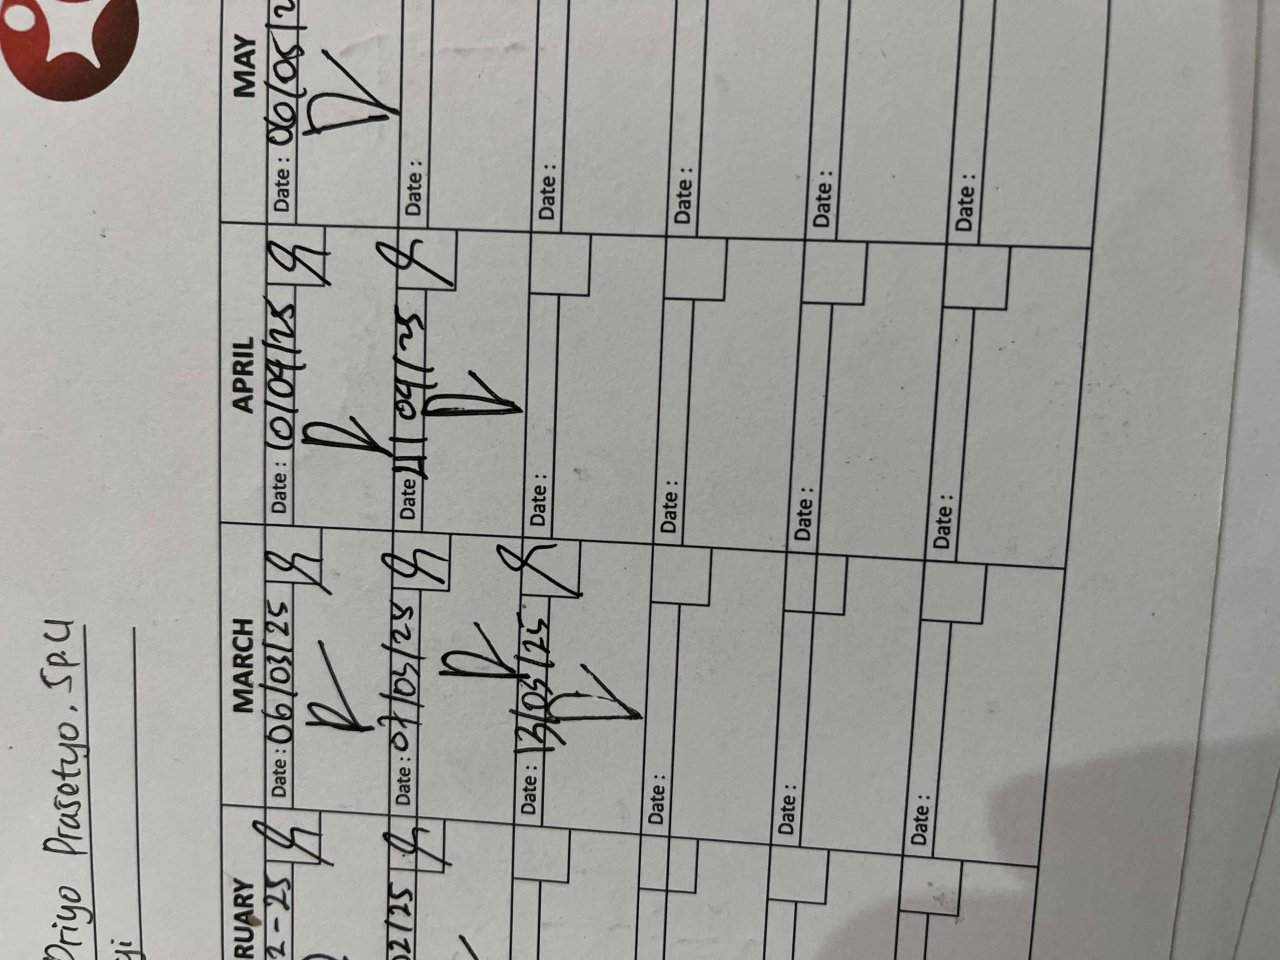 Driyo Prasetyo, Sp.U
RUARY MARCH APRIL MAY
2-25 Date: 06/03/25 Date: 10/04/25 Date: 06/05/2
02/25 Date: 07/03/25 Date 21/04/25 Date:
Date: 13/03/25 Date: Date:
Date: Date: Date:
Date: Date: Date:
Date: Date: Date: